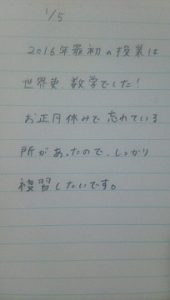 1/5
2016年最初の授業は
世界史、数学でした!
お正月休みで忘れている
所があったので、しっかり
復習したいです。